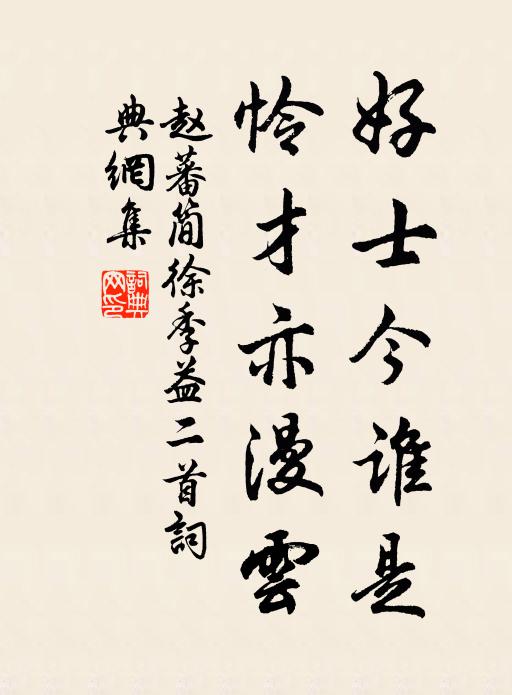 好士今谁是
怜才亦漫雲
赵蕃简徐季益二首詞
典網集
詞典網印